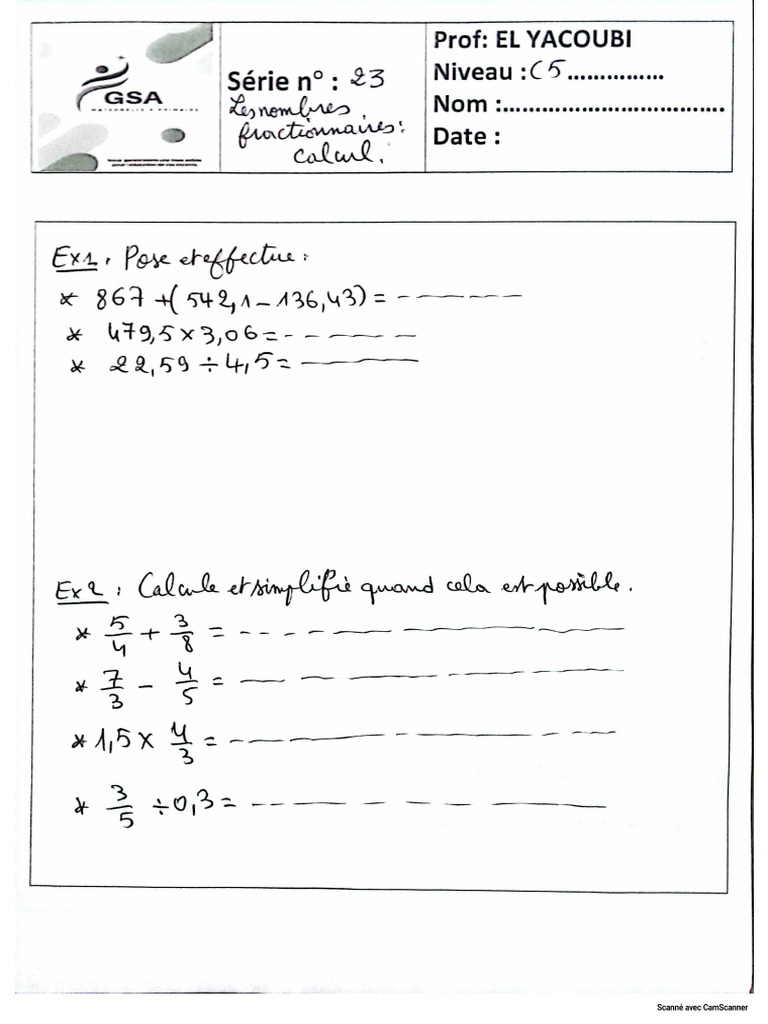 GSA
Prof: EL YACOUBI
Série n° : 23
Niveau : C5...............
Les nombres
fractionnaires :
calcul.
Nom :.................................
Date :
Ex1 : Pose et effectue :
* 867 + (542,1 - 136,43) = ----------
* 479,5 × 3,06 = ----------
* 22,59 ÷ 4,5 = ----------
Ex2 : Calcule et simplifie quand cela est possible.
* 5/4 + 3/8 = ----------
* 7/3 - 4/5 = ----------
* 1,5 × 4/3 = ----------
* 3/5 ÷ 0,3 = ----------
Scanné avec CamScanner